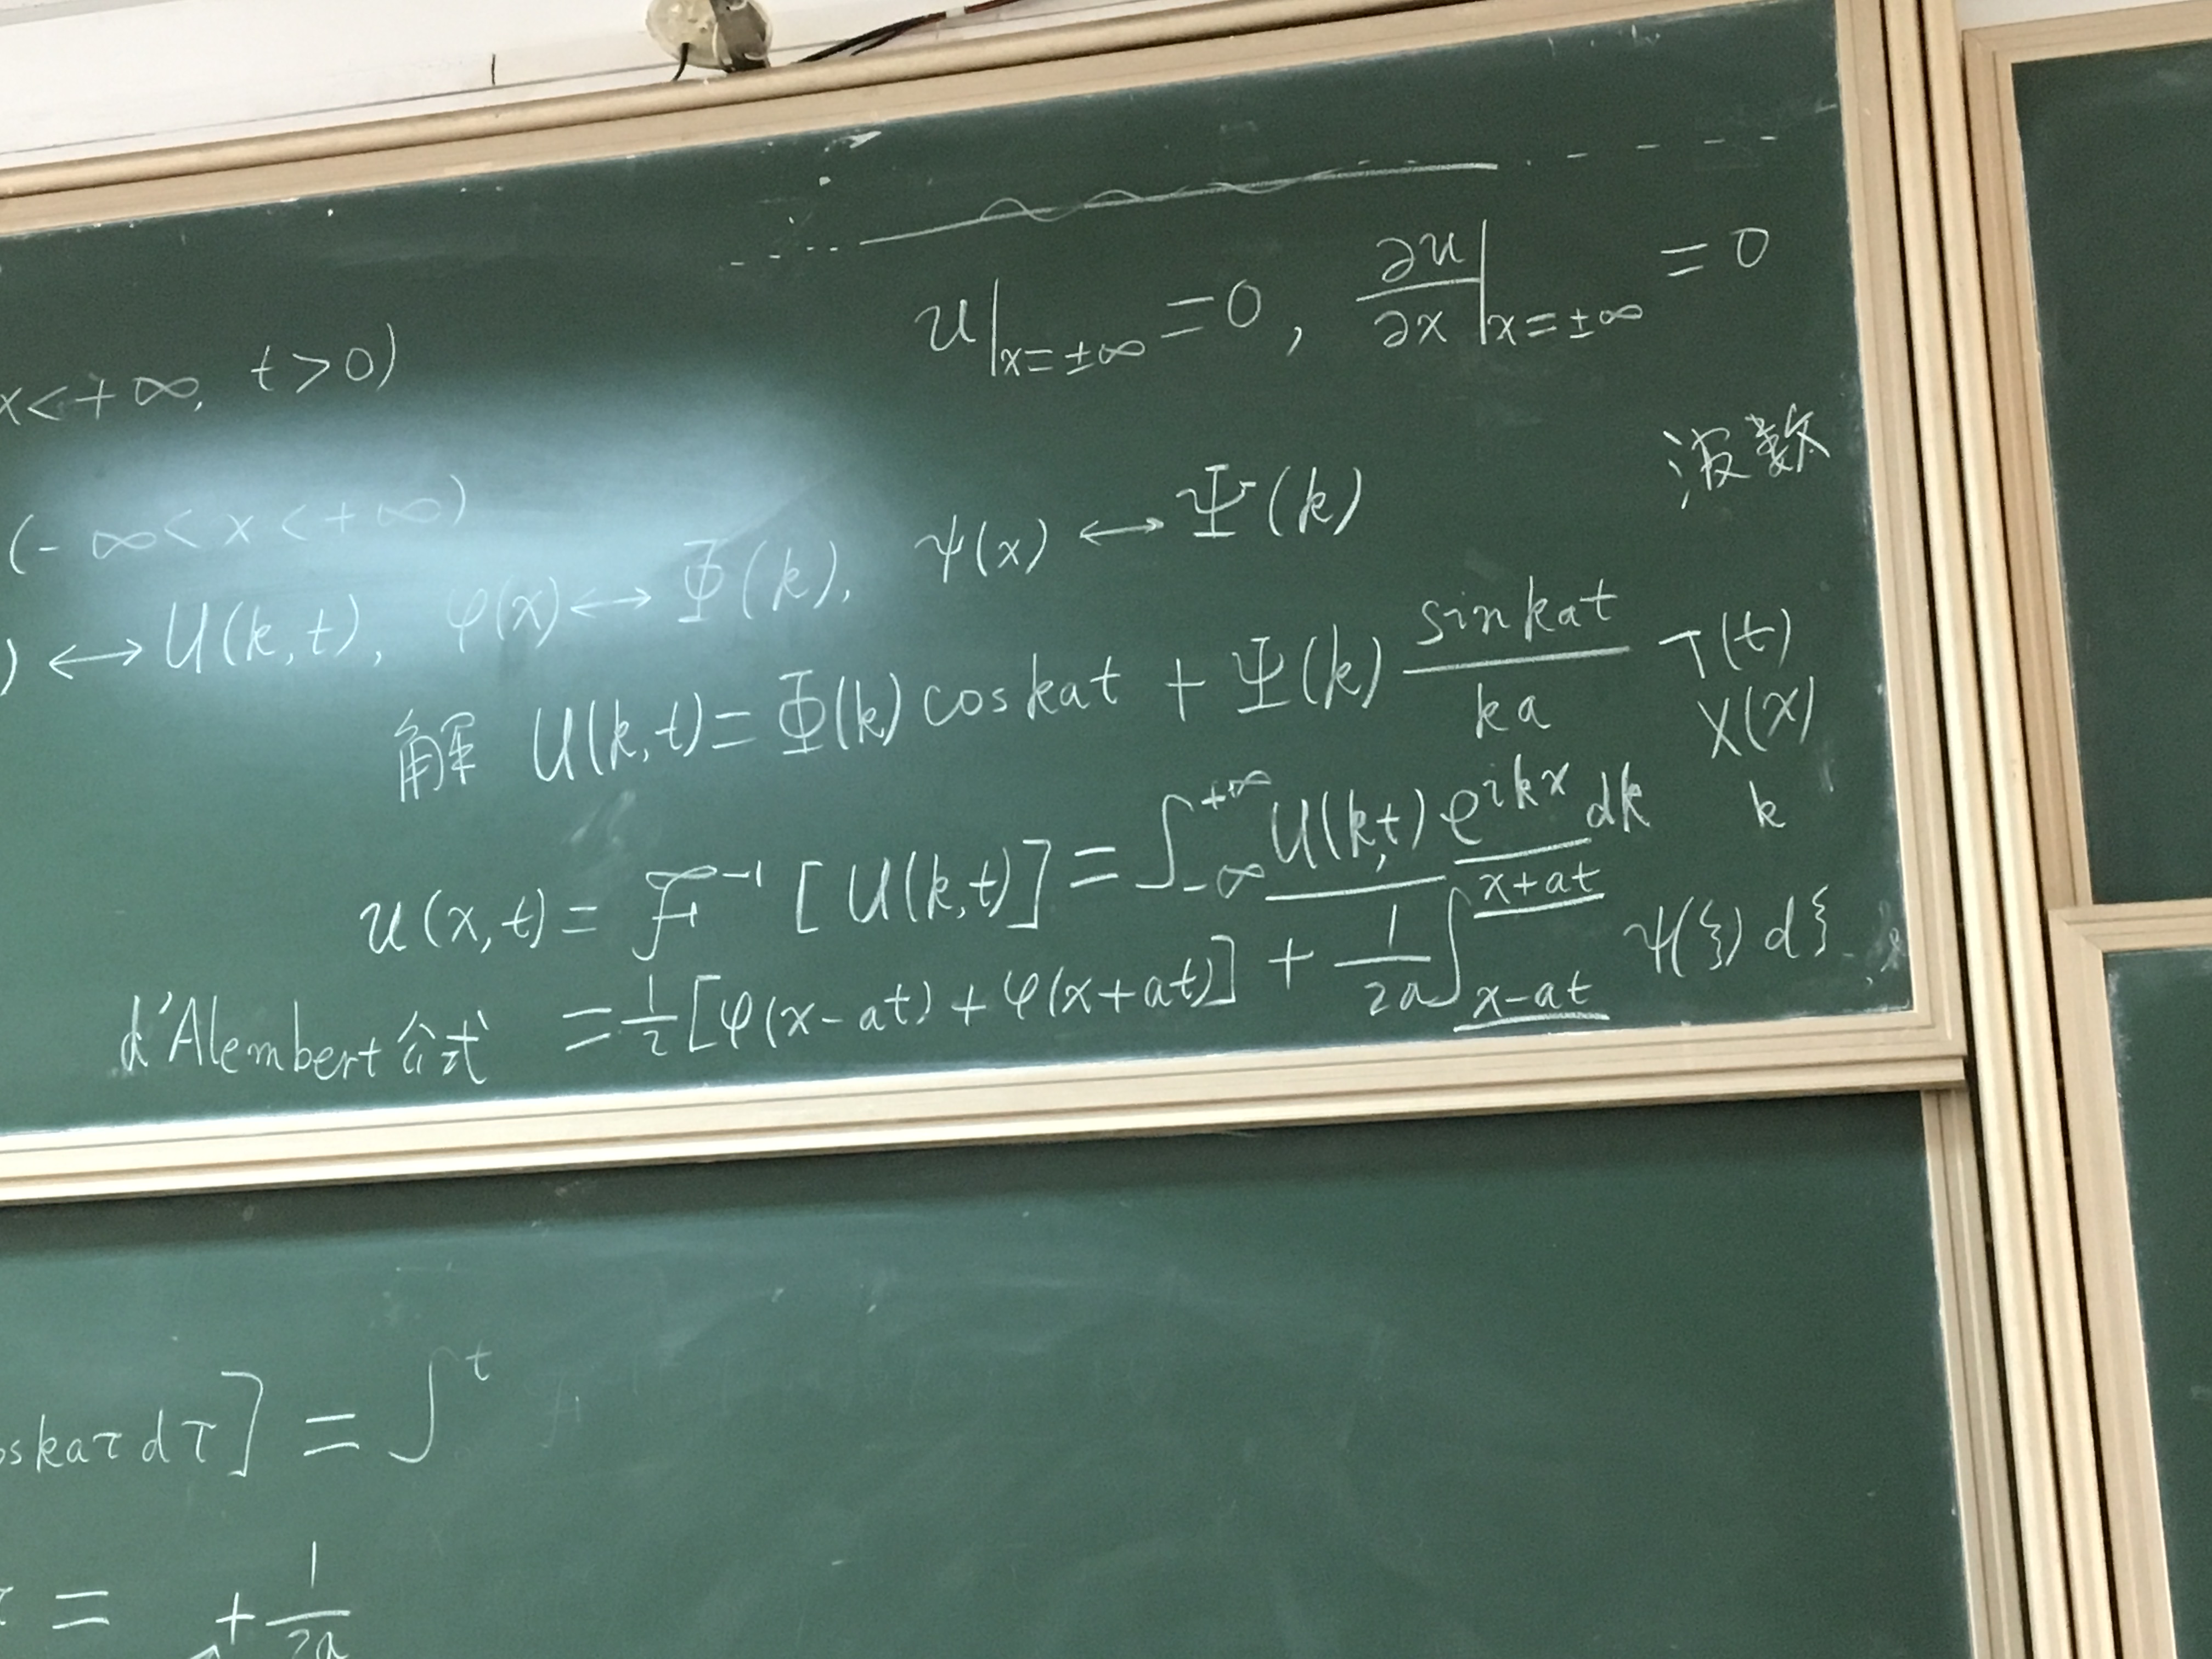 u|_{x=±∞} =0, ∂u/∂x|_{x=±∞} = 0
x<+∞, t>0)
波数
(-∞<x<+∞)
) ↔ U(k,t), φ(x)↔Φ(k), ψ(x)↔Ψ(k)
解 U(k,t)=Φ(k)coskat + Ψ(k) sinkat/ka T(t)
X(x)
u(x,t)= F⁻¹[U(k,t)] = ∫_{-∞}^{+∞} U(k,t) e^{ikx} dk k
d'Alembert公式 =1/2[φ(x-at)+φ(x+at)] + 1/2a ∫_{x-at}^{x+at} ψ(ξ)dξ
oskaτdτ] = ∫^t
= + 1/2a